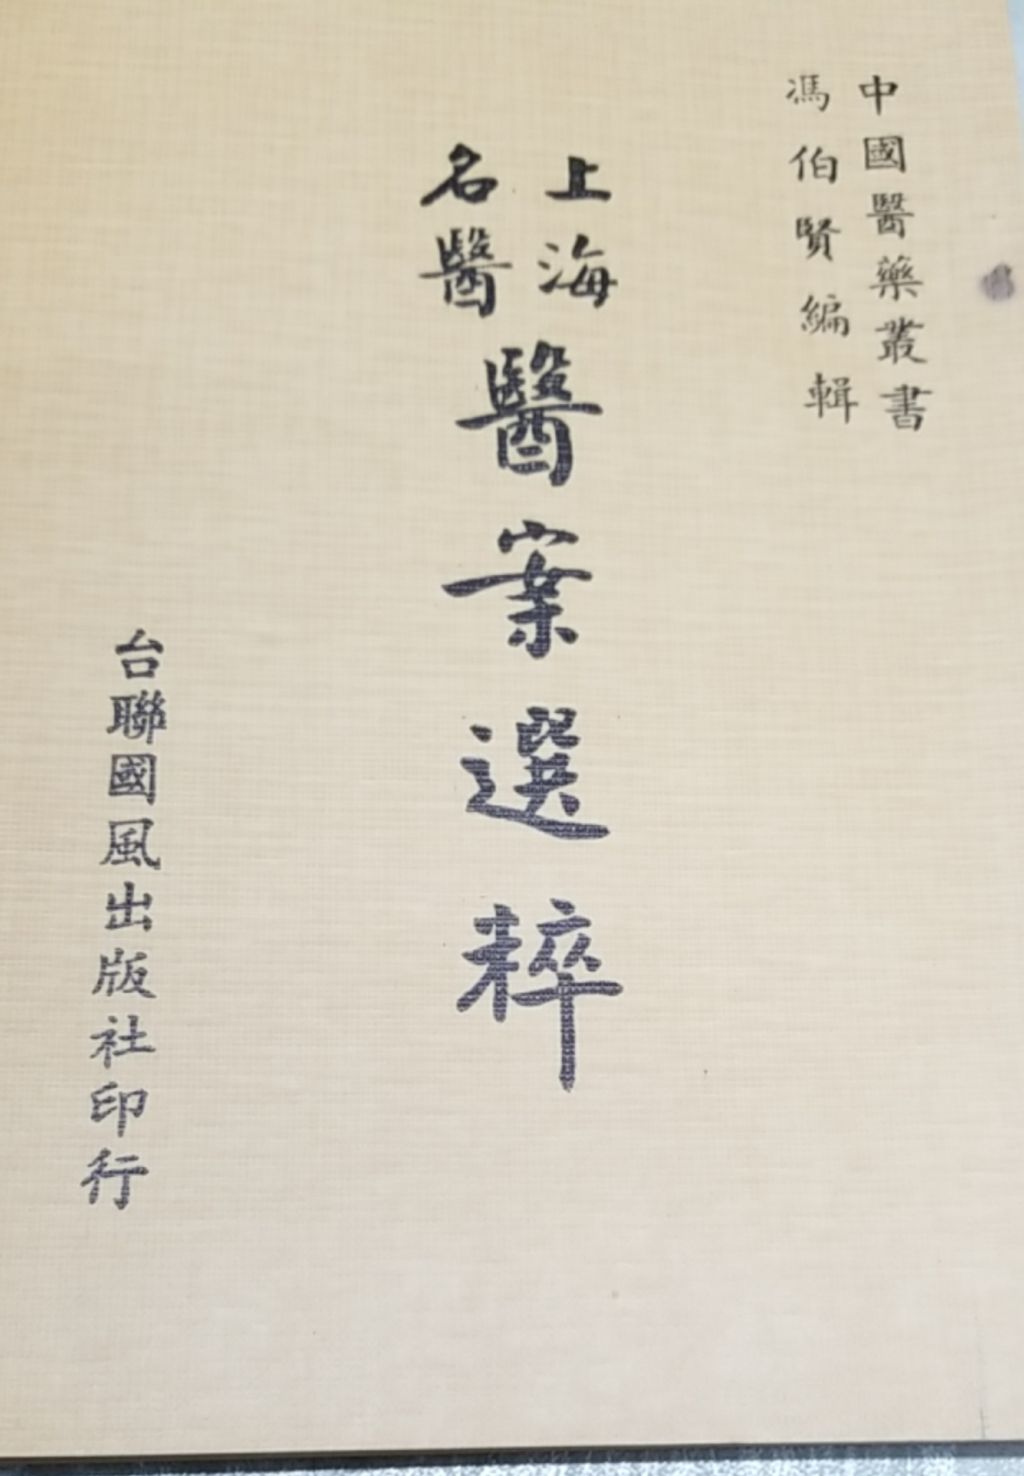 中國醫藥叢書
馮伯賢編輯
上海
名醫
醫案選粹
台聯國風出版社印行